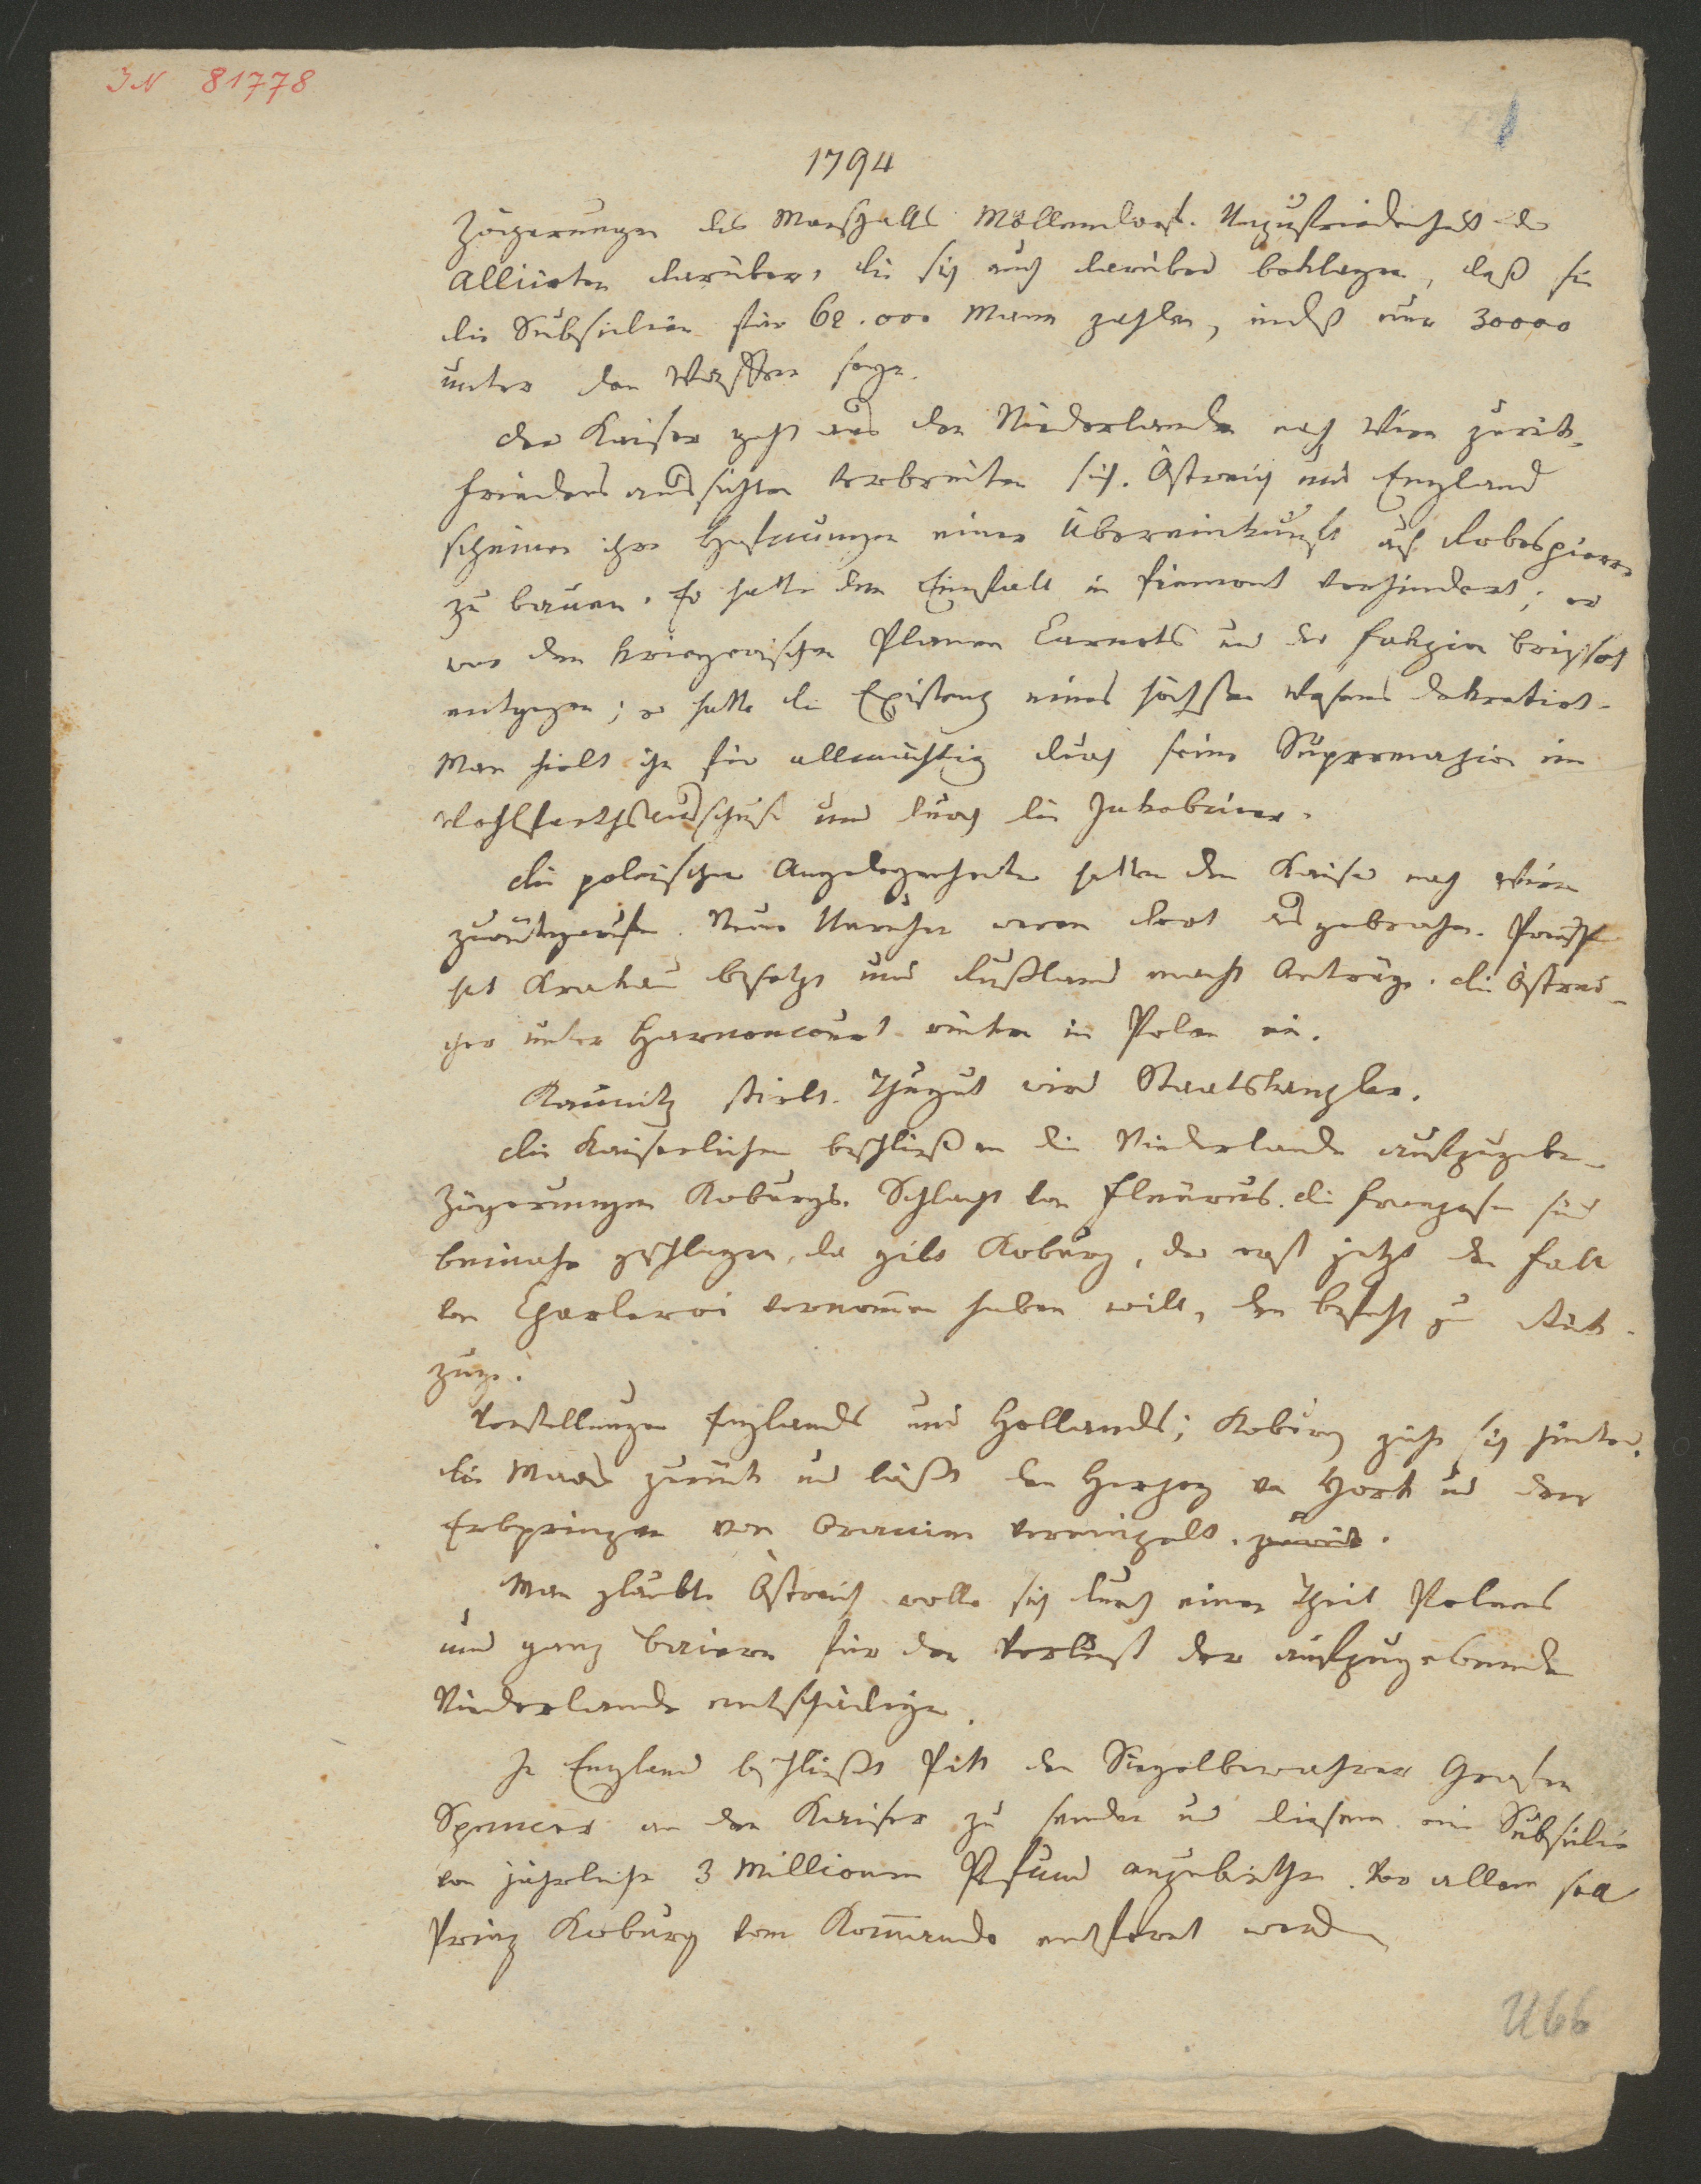 IN 81778
1
1794
Zögerungen des Marschalls Möllendorf. Unzufriedenheit der
Alliirten darüber, die sich auch darüber beklagen, daß sie
die Subsidien für 62.000 Mann zahlen, indeß nur 30000
unter den Waffen seyn.
Der Kaiser geht aus den Niederlanden nach Wien zurük.
Friedensaussichten verbreiten sich. Östreich und England
scheinen ihre Hofnungen einer Übereinkunft auf Robespierre
zu bauen. Er hatte den Einfall in Piemont verhindert; er
war den kriegerischen Planen Carnots und der Fakzion Brissot
entgegen; er hatte die Existenz eines höchsten Wesens dekretirt.
Man hielt ihn für allmächtig durch seine Supremazie im
Wohlfarthsausschuß und durch die Jakobiner.
Die polnischen Angelegenheiten hatten den Kaiser nach Wien
zurükgerufen. Neue Unruhen waren dort ausgebrochen. Preußen
hat Krakau besetzt und Rußland macht Anträge. Die Östrei-
cher unter Harnoncourt rüken in Polen ein.
Kaunitz stirbt. Thugut wird Staatskanzler.
Die Kaiserlichen beschließen die Niederlande aufzugeben.
Zögerungen Koburgs. Schlacht von Fleurus. Die Franzosen sind
beinahe geschlagen, da gibt Koburg, der erst jetzt den Fall
von Charleroi vernommen haben will, den Befehl zum Rük-
zuge.
Vorstellungen Englands und Hollands; Koburg zieht sich hinter
die Maas zurük und läßt den Herzog von York und den
Erbprinzen von Oranien vereinzelt. zurük.
Man glaubte Östreich wolle sich durch einen Theil Polens
und ganz Baiern für den Verlust der aufzugebenden
Niederlande entschädigen.
In England beschließt Pitt den Siegelbewahrer Grafen
Spencer an den Kaiser zu senden und diesem eine Subsidie
von jährlich 3 Millionen Pfund anzubiethen. Vor allem soll
Prinz Koburg vom Kommando entfernt werden
U66